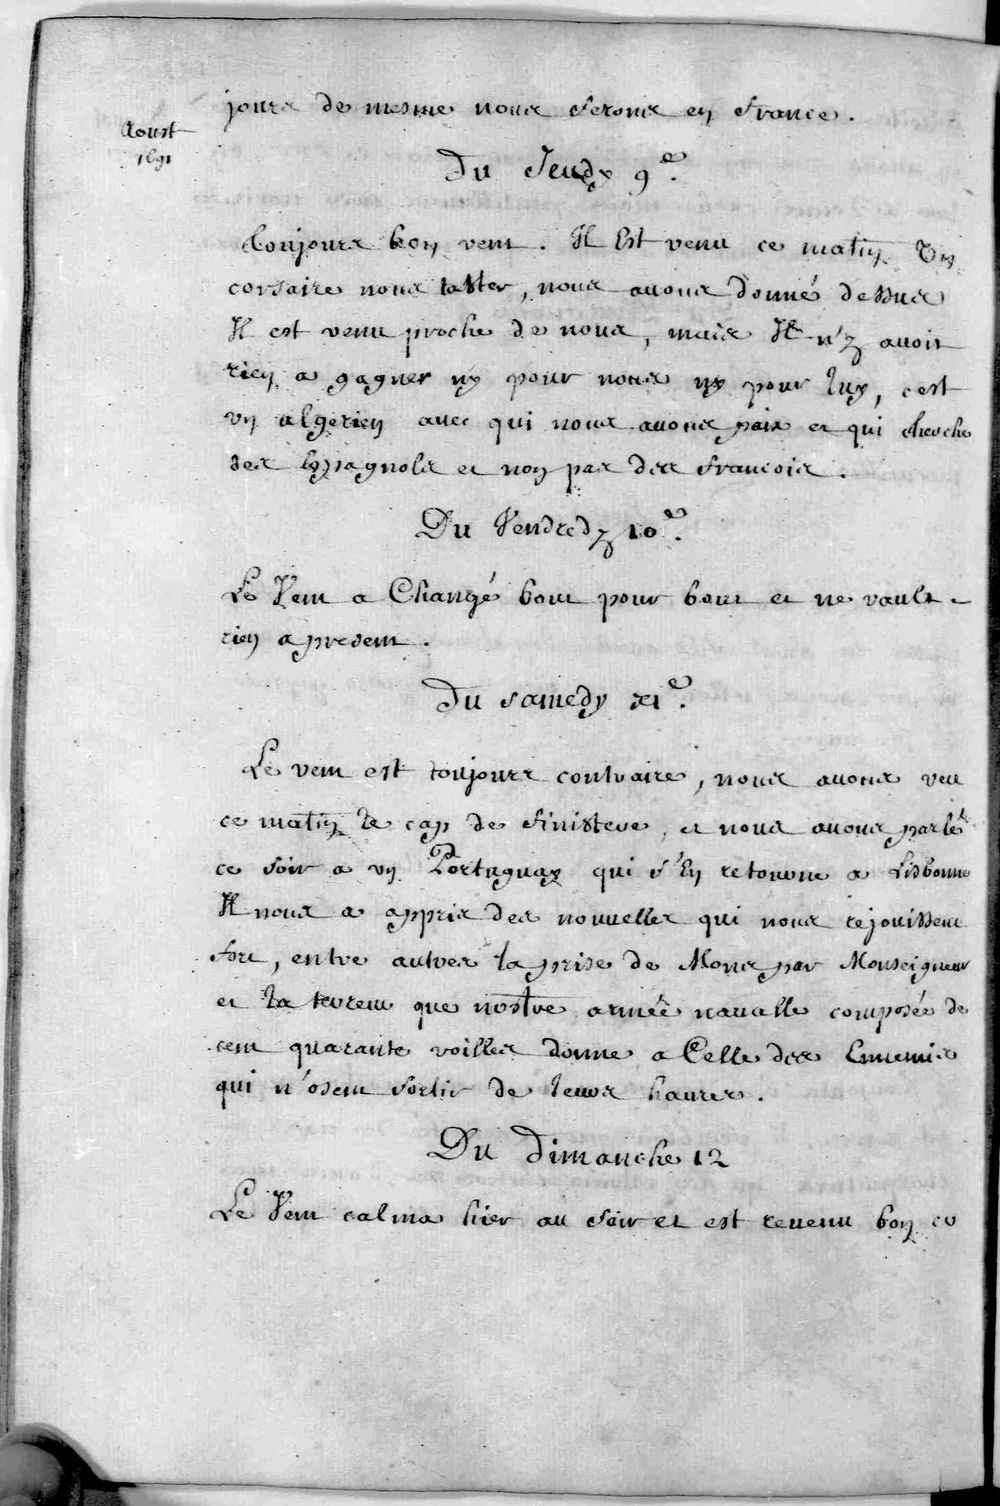 jours de mesme nous serons en france.
Aoust
1691
Du Jeudy 9e.
Toujours bon vent. Il Est venu ce matin Un
corsaire nous taster, nous auons donné dessus
Il est venu proche de nous, mais Il n'y auoit
rien a gagner ny pour nous ny pour luy, c'est
vn algerien auec qui nous auons paix et qui cherche
des Espagnols et non pas des francois.
Du Vendredy 10e.
Le Vent a Changé bout pour bout et ne vault
rien apresent.
Du samedy 11e.
Le vent est toujours contraire, nous auons veu
ce matin le cap de finistere, et nous auons parlé
ce soir a vn Portuguay qui s'En retourne a Lisbonne
Il nous a appris des nouuelles qui nous rejouissent
fort, entre autres la prise de Mons par Monseigneur
et la terreur que nostre armée naualle composée de
cent quarante voilles donne a Celle des Ennemis
qui n'osent sortir de leurs haures.
Du dimanche 12
Le Vent calma hier au soir et est reuenu bon ce